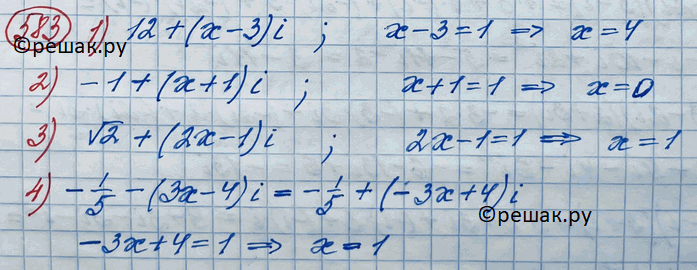 583 1) 12 + (x − 3) i ; x − 3 = 1 ⇒ x = 4
©решак.ру
2) − 1 + (x + 1) i ; x + 1 = 1 ⇒ x = 0
3) √2 + (2x − 1) i ; 2x − 1 = 1 ⇒ x = 1
4) − 1/5 − (3x − 4) i = − 1/5 + (− 3x + 4) i
©решак.ру
− 3x + 4 = 1 ⇒ x = 1